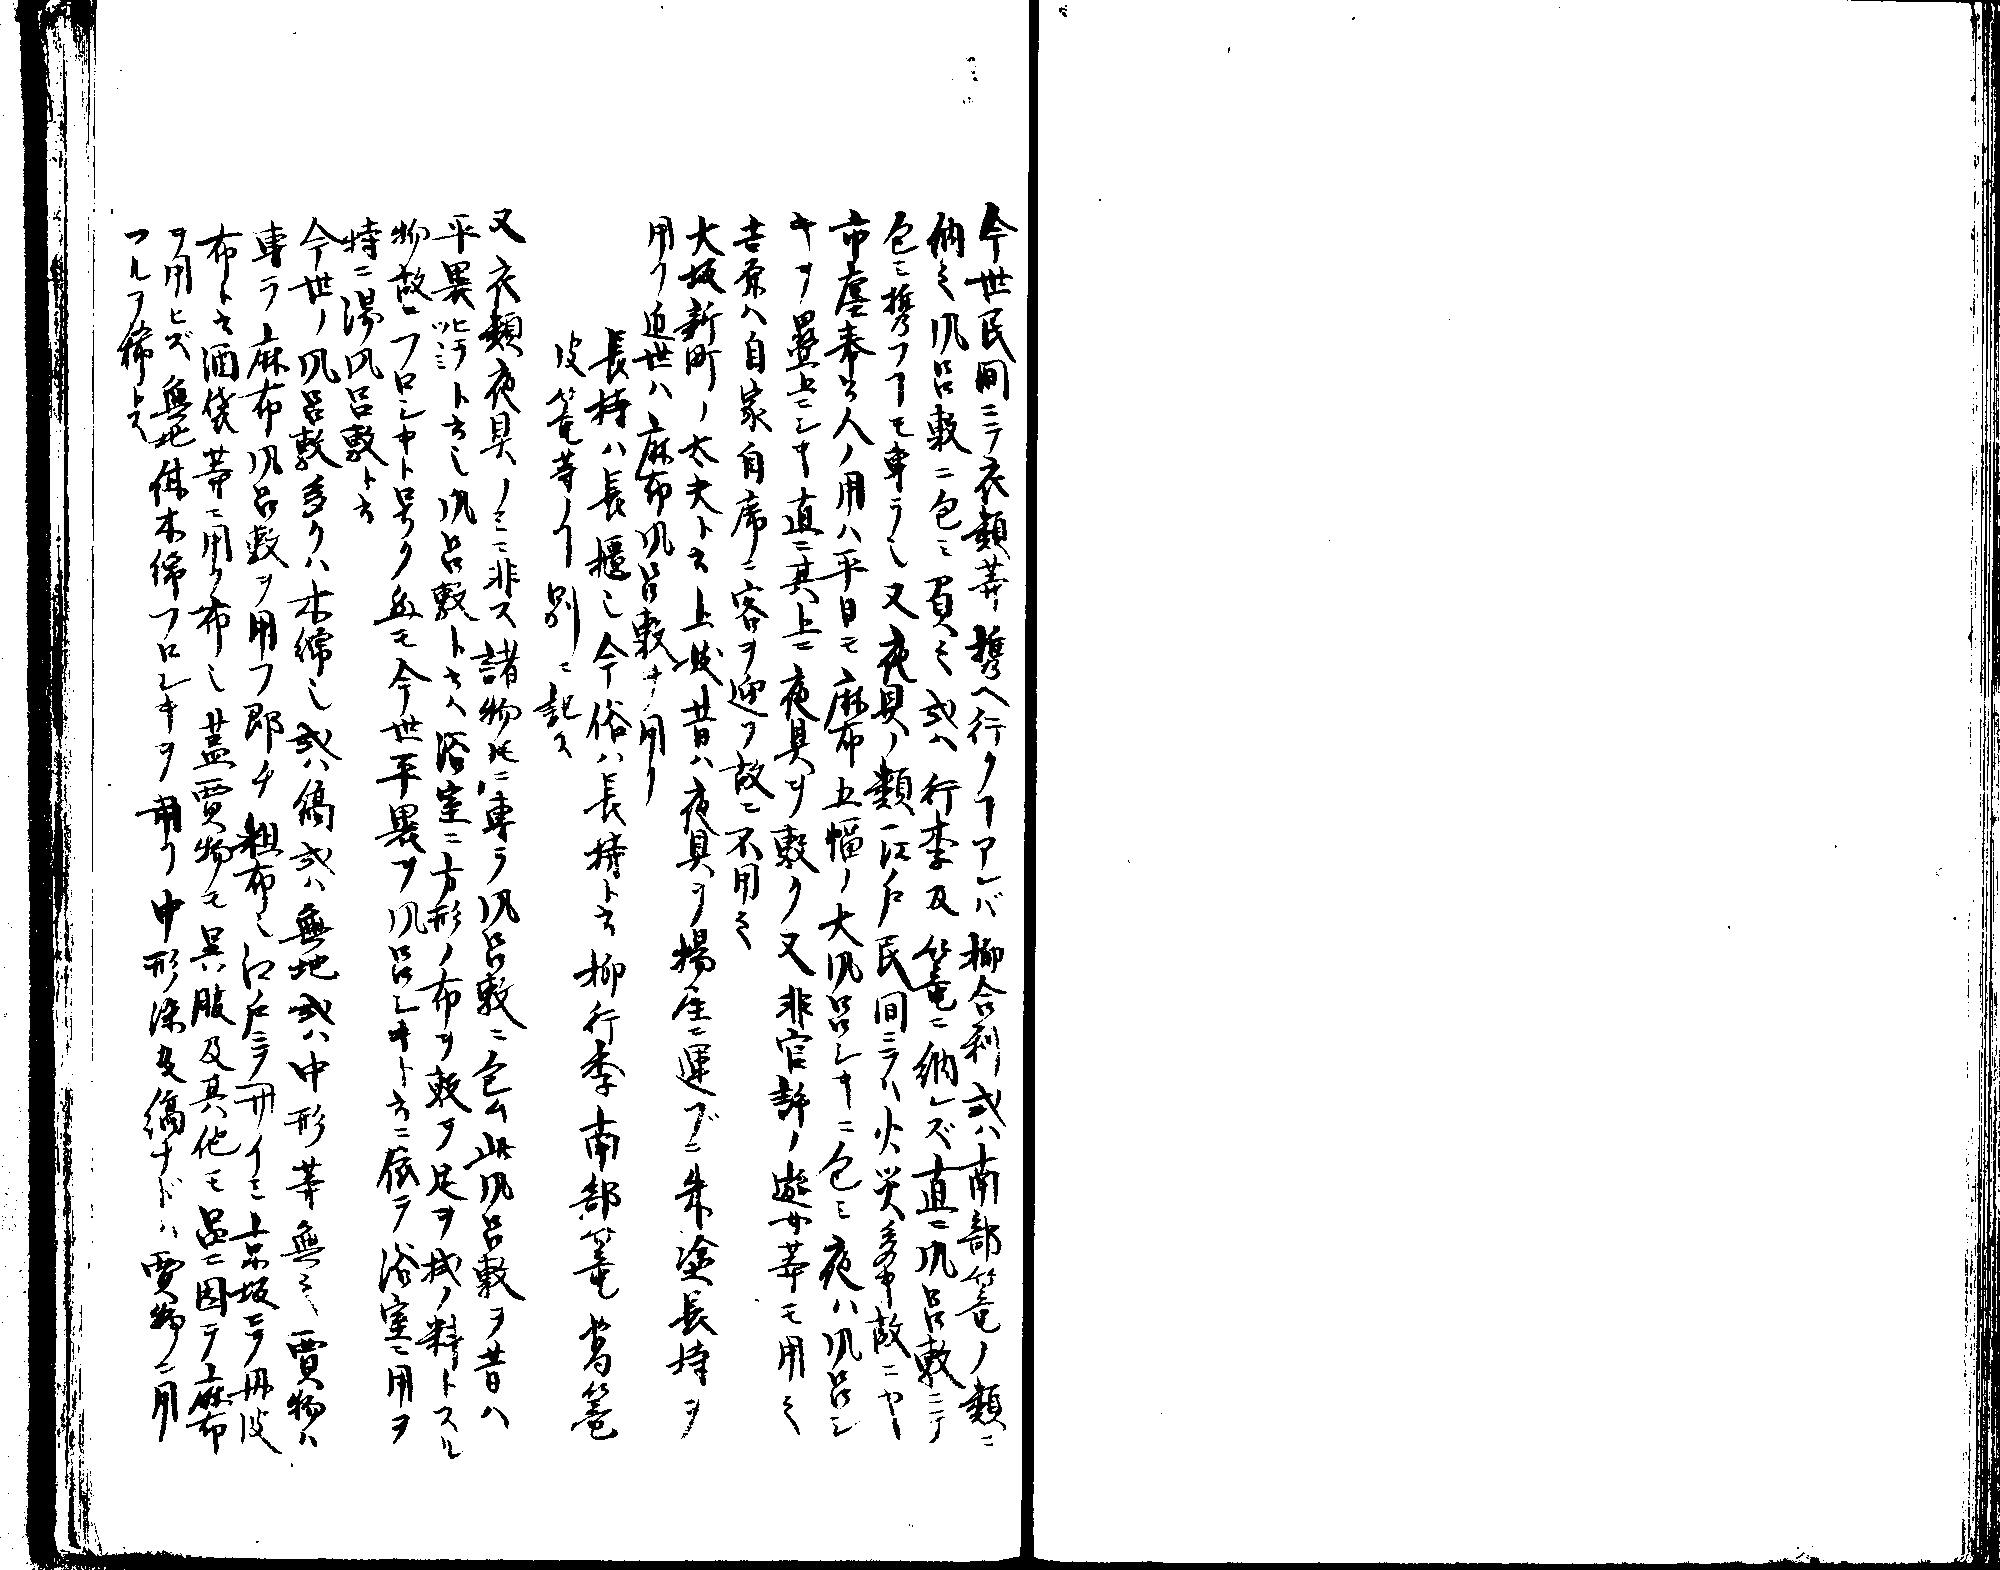 今世民間ニテ衣類等携ヘ行クヿアレバ柳合利或ハ南部篭ノ類ニ
納メ風呂敷ニ包ミ負之或ハ行李及篭ニ納レズ直ニ風呂敷ニテ
包ミ携フヿモ専ラ也又夜具ノ類江戸民間ニテハ火災多キ故ニヤ
市店奉公人ノ用ハ平日モ麻布五幅ノ大風呂シキニ包ミ夜ハ風呂シ
キヲ畳上ニシキ直ニ其上ニ夜具ヲ敷ク又非官許ノ遊女等モ用之
吉原ハ自家自席ニ客ヲ迎フ故ニ不用之
大坂新町ノ太夫ト云上妓昔ハ夜具ヲ揚屋ニ運ブニ朱塗長持ヲ
用フ近世ハ麻布風呂敷ヲ用フ
長持ハ長櫃也今俗ハ長持ト云柳行李南部篭葛篭
皮篭等ノヿ別ニ記ス
又衣類夜具ノミニ非ス諸物トモニ専ラ風呂敷ニ包ム此風呂敷ヲ昔ハ
平裹ヒラツヽミト云也風呂敷ト云ハ浴室ニ方形ノ布ヲ敷ヲ足ヲ拭ノ料トスル
物故ニフロシキト号ク無モ今世平裹ヲ風呂シキト云ニ依テ浴室ニ用ヲ
特ニ湯風呂敷ト云
今世ノ風呂敷多クハ木綿也或ハ縞或ハ無地或ハ中形等無之賈物ハ
専ラ麻布風呂敷ヲ用フ即チ粗布也江戸ニテ冊イミ京坂ニテ丹波
布ト云酒袋等ニ用フ布也蓋賈物モ呉服及其他モ品ニ因テ麻布
ヲ用ヒズ無地保木綿フロシキヲ用フ中形染及縞ナドハ賈物ニ用
フルヿ稀トス